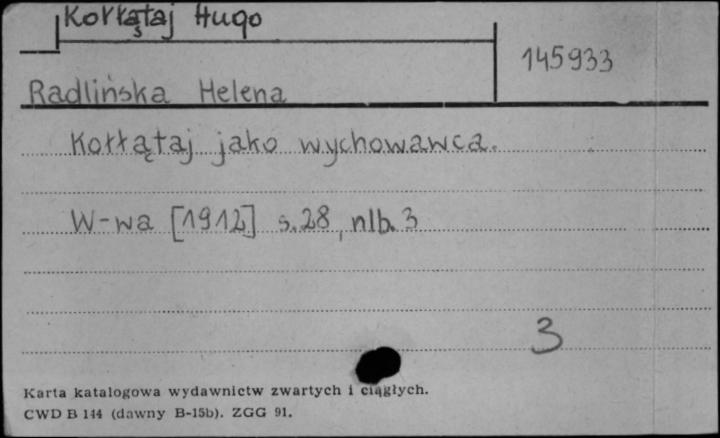 Kołłątaj Hugo
145933
Radlińska Helena
Kołłątaj jako wychowawca.
W-wa [1912] s. 28, nlb. 3
3
Karta katalogowa wydawnictw zwartych i ciągłych.
CWD B 144 (dawny B-15b). ZGG 91.